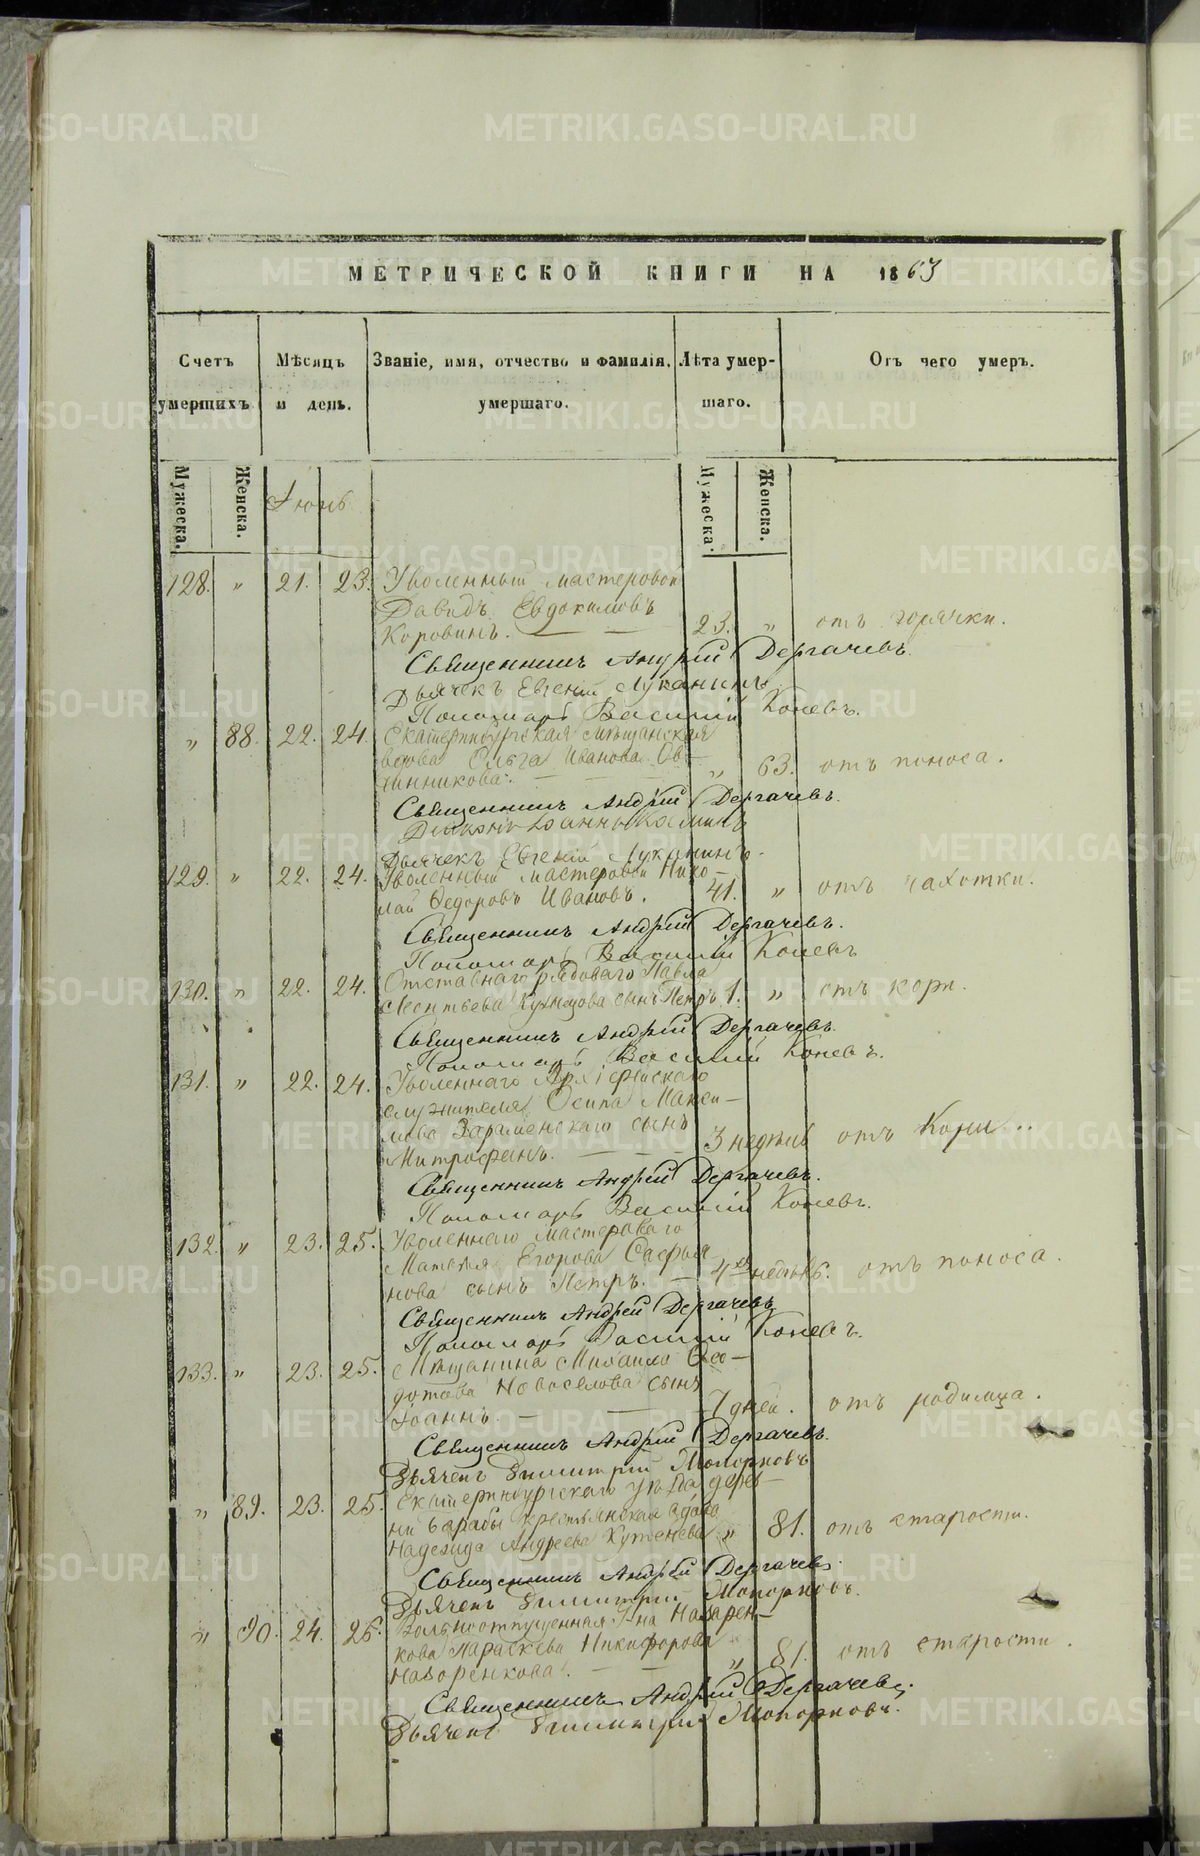 МЕТРИЧЕСКОЙ КНИГИ НА 1863
Счетъ умершихъ
Мѣсяцъ и день.
Званіе, имя, отчество и фамилія, умершаго.
Лѣта умершаго.
Отъ чего умеръ.
Мужеска. Женска. Мужеска. Женска.
Іюнь
128. " 21. 23. Уволенный мастеровой
Давидъ Евдокимовъ
Коровинъ. 23. " отъ горячки.
Священникъ Андрей Дергачевъ.
Дьячекъ Евгеній Луканинъ
Пономарь Василій Коневъ.
" 88. 22. 24. Екатеринбургская мѣщанская
вдова Ольга Иванова Ов-
чинникова. " 63. отъ поноса.
Священникъ Андрей Дергачевъ.
Діаконъ Іоаннъ
Дьячекъ Евгеній Луканинъ.
129. " 22. 24. Уволенный мастеровой Нико-
лай Ѳедоровъ Ивановъ. 41. " отъ чахотки.
Священникъ Андрей Дергачевъ.
Пономарь Василій Коневъ
130. " 22. 24. Отставнаго рядоваго Павла
Леонтьева Кузнецова сынъ Петръ 1. " отъ кори.
Священникъ Андрей Дергачевъ.
Пономарь Василій Коневъ.
131. " 22. 24. Уволеннаго Архіерейскаго
служителя Осипа Макси-
мова сынъ
Митрофанъ. 3 недѣль отъ Кори.
Священникъ Андрей Дергачевъ.
Пономарь Василій Коневъ.
132. " 23. 25. Уволеннаго мастероваго
Матвѣя Егорова Сафья-
нова сынъ Петръ. 4хъ недѣль. отъ поноса.
Священникъ Андрей Дергачевъ
Пономарь Василій Коневъ.
133. " 23. 25. Мѣщанина Михаила Ѳео-
дотова Новоселова сынъ
Іоаннъ. 7 дней. отъ родимца.
Священникъ Андрей Дергачевъ.
Дьячекъ Димитрій Топорковъ
" 89. 23. 25. Екатеринбургскаго уѣзда дерев-
ни крестьянская вдова
Надежда Андреева " 81. отъ старости.
Священникъ Андрей Дергачевъ.
Дьячекъ Димитрій Топорковъ.
" 90. 24. 26. Вольноотпущенная Г-на Назарен-
кова Параскева Никифорова
Назоренкова. " 81. отъ старости.
Священникъ Андрей Дергачевъ.
Дьячекъ Димитрій Топорковъ.
METRIKI.GASO-URAL.RU